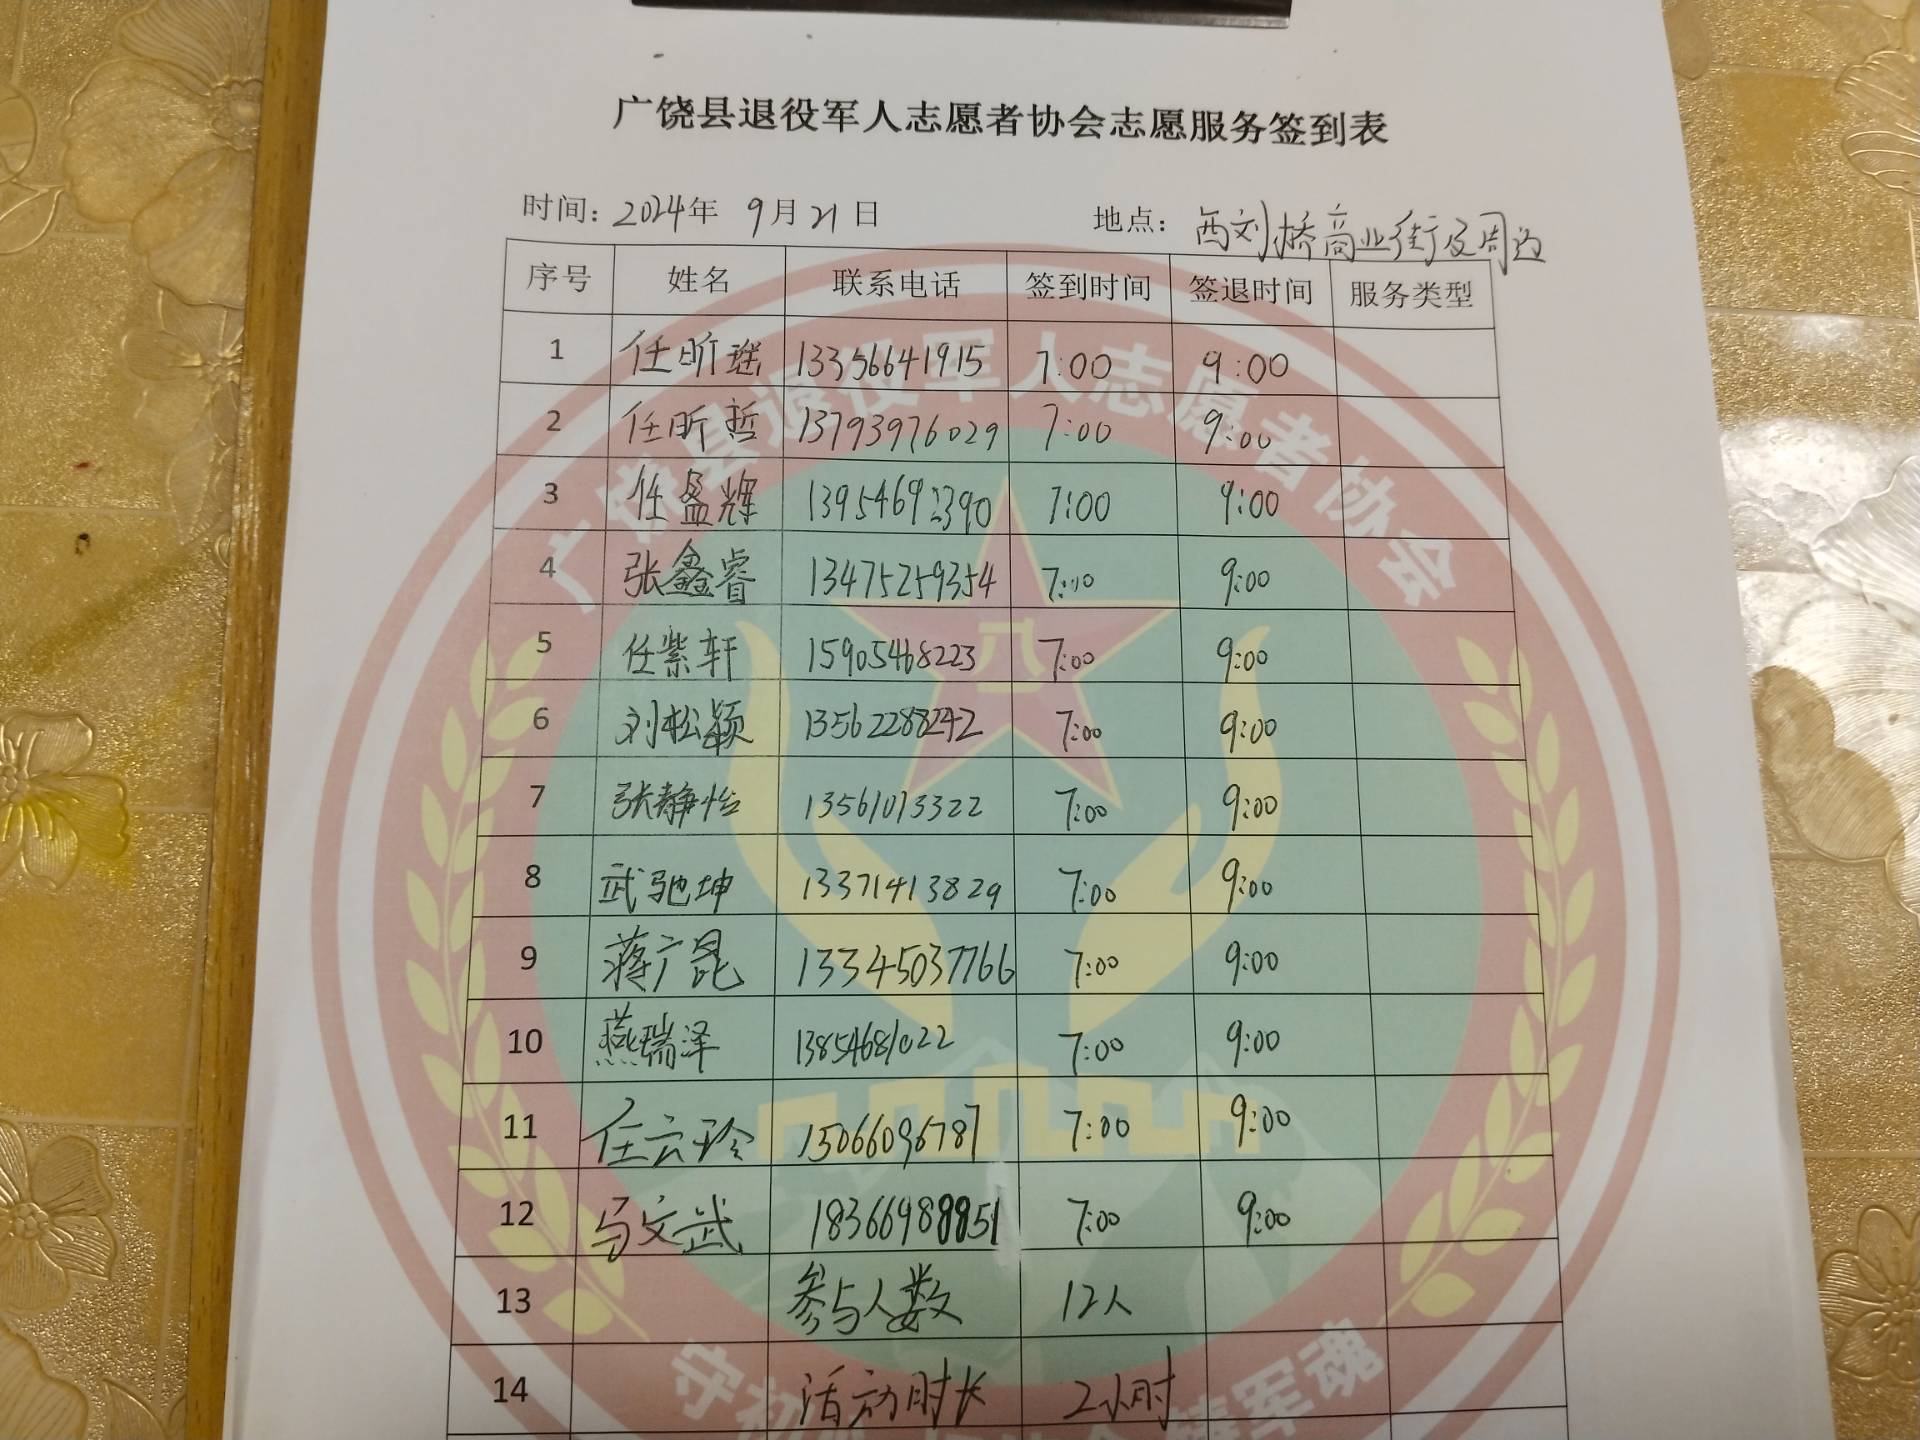 广饶县退役军人志愿者协会志愿服务签到表
时间: 2024年 9月21日 地点: 西刘桥商业街及周边
序号 姓名 联系电话 签到时间 签退时间 服务类型
1 任昕瑶 13356641915 7:00 9:00
2 任昕哲 13793976029 7:00 9:00
3 任盈辉 13954692390 7:00 9:00
4 张鑫睿 13475259354 7:00 9:00
5 任紫轩 15905468223 7:00 9:00
6 刘松颖 13562288242 7:00 9:00
7 张静怡 13561013322 7:00 9:00
8 武驰坤 13371413829 7:00 9:00
9 蒋广昆 13345037766 7:00 9:00
10 燕瑞泽 13854681022 7:00 9:00
11 任云玲 15066096787 7:00 9:00
12 马文武 18366988851 7:00 9:00
13 参与人数 12人
14 活动时长 2小时
广饶县退役军人志愿者协会
八一
守初
军魂